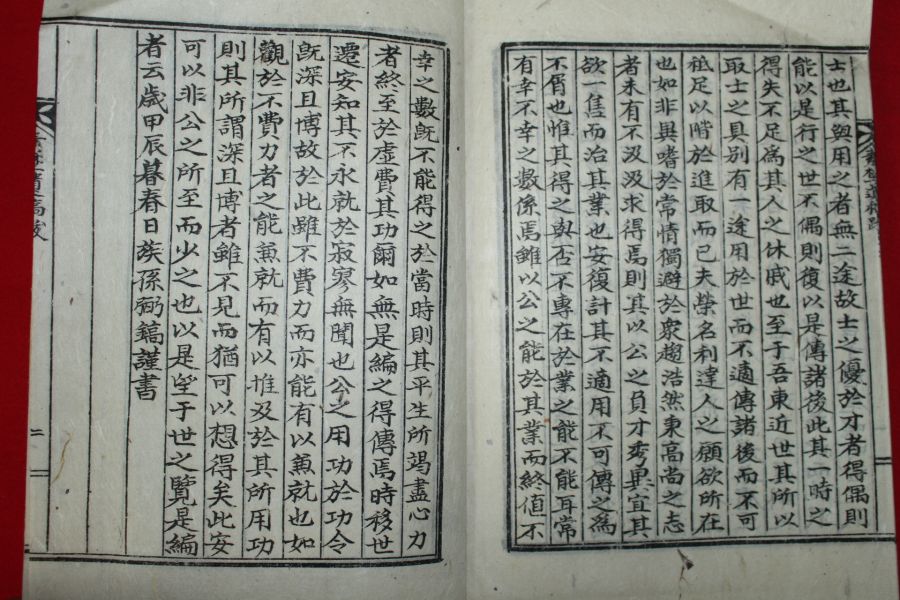 士也其與用之者無二途故士之優於才者得偶則
能以是行之世不偶則復以是傳諸後此其一時之
得失不足爲其人之休戚也至于吾東近世其所以
取士之具别有一途用於世而不適傳諸後而不可
秪足以階於進取而已夫榮名利達人之願欲所在
也如非異嗜於常情獨避於衆趨浩然東高尚之志
者未有不汲汲求得焉則其以公之負才秀異宜其
欲一售而治其業也安復計其不適用不可傳之爲
不屑也惟其得之與否不專在於業之能不能耳常
有幸不幸之數係焉雖以公之能於其業而終値不
幸之數旣不能得之於當時則其平生所竭盡心力
者終至於虛費其功爾如無是編之得傳焉時移世
遷安知其不永就於寂寥無聞也公之用功於功令
旣深且博故於此雖不費力而亦能有以兼就也如
觀於不費力者之能兼就而有以推及於其所用功
則其所謂深且博者雖不見而猶可以想得矣此安
可以非公之所至而少之也以是望于世之覽是編
者云歲甲辰暮春日族孫弼鎬謹書
二